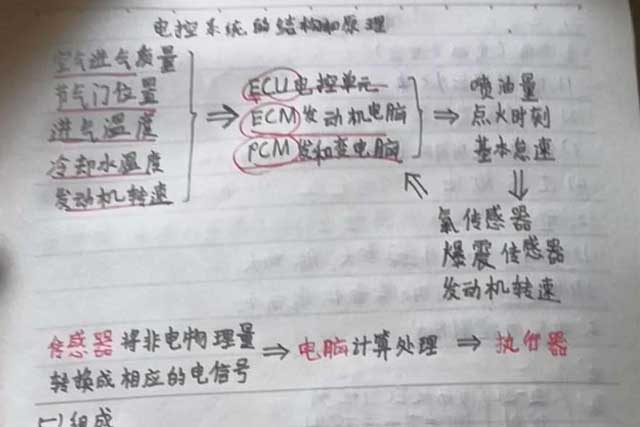 电控系统的结构和原理
空气进气质量
节气门位置
进气温度
冷却水温度
发动机转速
⇒
ECU电控单元
ECM发动机电脑
PCM发和变电脑
⇒
喷油量
点火时刻
基本怠速
氧传感器
爆震传感器
发动机转速
传感器将非电物理量 ⇒ 电脑计算处理 ⇒ 执行器
转换成相应的电信号
(一)组成